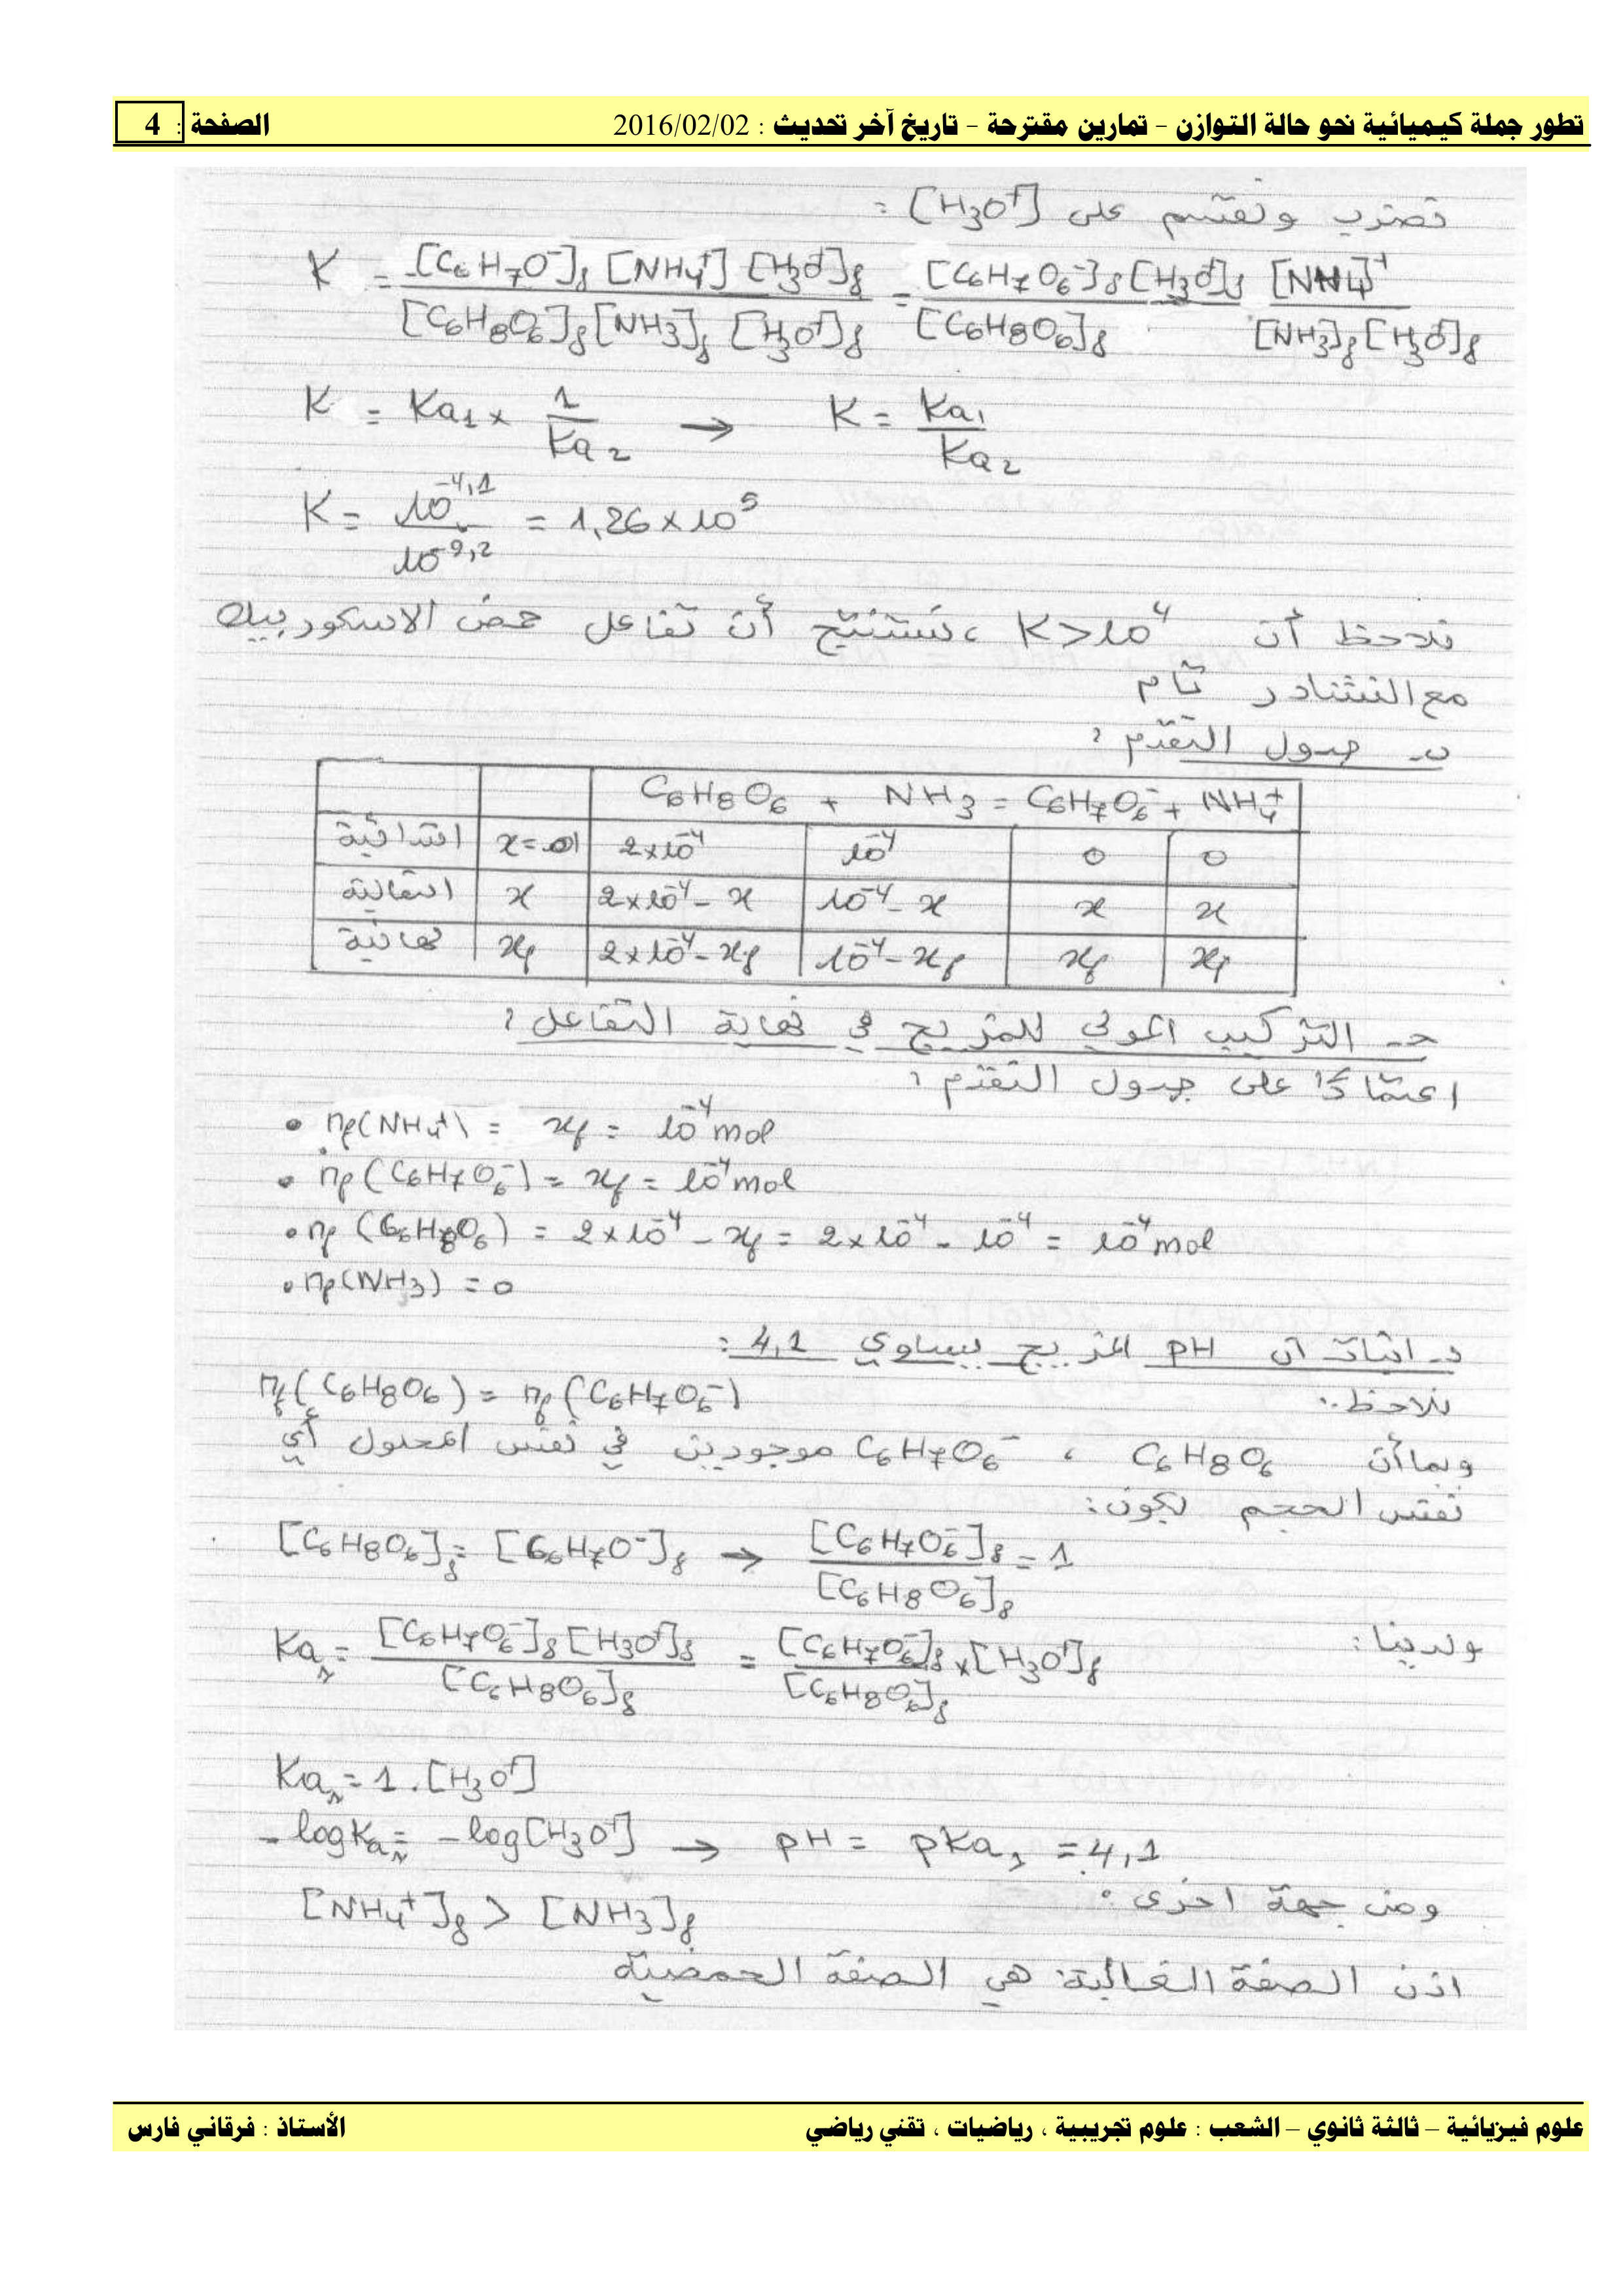 تطور جملة كيميائية نحو حالة التوازن – تمارين مقترحة – تاريخ آخر تحديث : 2016/02/02 الصفحة : 4
نضرب ونقسم على [H3O+] :
K = [C6H7O-]f [NH4+] [H3O+]f / [C6H8O6]f [NH3]f [H3O+]f = [C6H7O6-]f [H3O+]f / [C6H8O6]f · [NH4]+ / [NH3]f [H3O+]f
K = Ka1 × 1/Ka2 → K = Ka1/Ka2
K = 10^-4,1 / 10^-9,2 = 1,26 × 10^5
نلاحظ أن K > 10^4 ، نستنتج أن تفاعل حمض الاسكوربيك
مع النشادر تام
ب- جدول التقدم :
C6H8O6 + NH3 = C6H7O6- + NH4+
ابتدائية x = 0 2×10^-4 10^-4 0 0
انتقالية x 2×10^-4 - x 10^-4 - x x x
نهائية xf 2×10^-4 - xf 10^-4 - xf xf xf
ج- التركيب المولي للمزيج في نهاية التفاعل :
اعتمادا على جدول التقدم :
• nf(NH4+) = xf = 10^-4 mol
• nf(C6H7O6-) = xf = 10^-4 mol
• nf(C6H8O6) = 2×10^-4 - xf = 2×10^-4 - 10^-4 = 10^-4 mol
• nf(NH3) = 0
د- اثبات ان pH المزيج يساوي 4,1 :
نلاحظ : nf(C6H8O6) = nf(C6H7O6-)
وبما أن C6H8O6 ، C6H7O6- موجودين في نفس المحلول أي
نفس الحجم يكون :
[C6H8O6]f = [C6H7O-]f → [C6H7O6-]f / [C6H8O6]f = 1
ولدينا : Ka1 = [C6H7O6-]f [H3O+]f / [C6H8O6]f = [C6H7O6-]f / [C6H8O6]f × [H3O+]f
Ka1 = 1 . [H3O+]
- log Ka1 = - log [H3O+] → pH = pKa1 = 4,1
ومن جهة اخرى :
[NH4+]f > [NH3]f
اذن الصفة الغالبة هي الصفة الحمضية
علوم فيزيائية – ثالثة ثانوي – الشعب : علوم تجريبية ، رياضيات ، تقني رياضي الأستاذ : فرقاني فارس